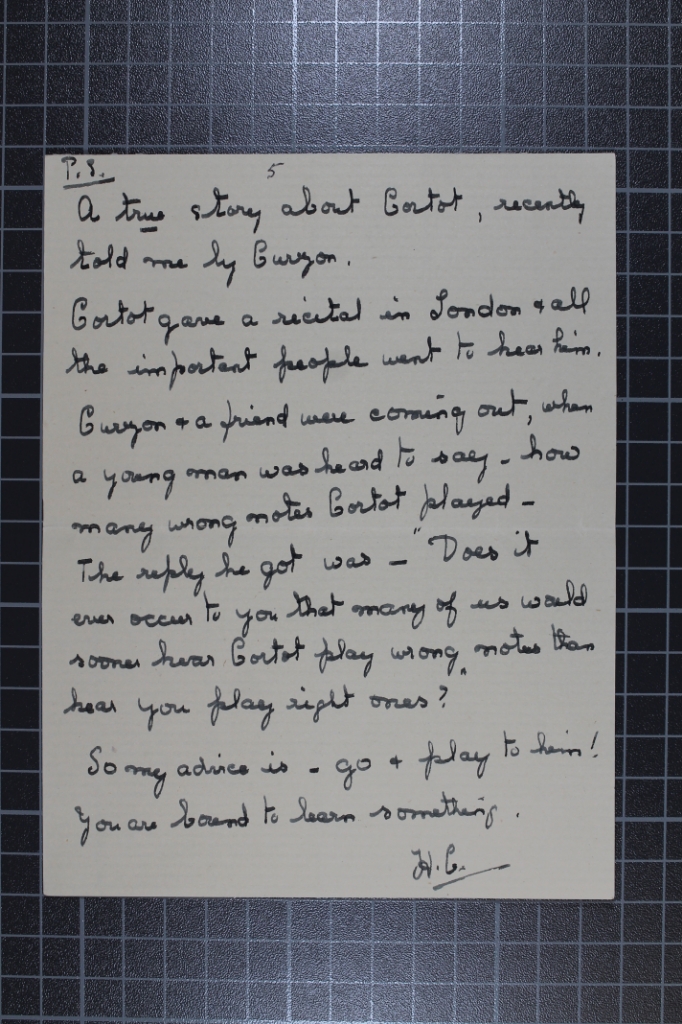 P.S.
5
A true story about Cortot, recently
told me by Curzon.
Cortot gave a recital in London & all
the important people went to hear him.
Curzon & a friend were coming out, when
a young man was heard to say - how
many wrong notes Cortot played -
The reply he got was - "Does it
ever occur to you that many of us would
sooner hear Cortot play wrong notes than
hear you play right ones?"
So my advice is - go & play to him!
You are bound to learn something.
H.C.